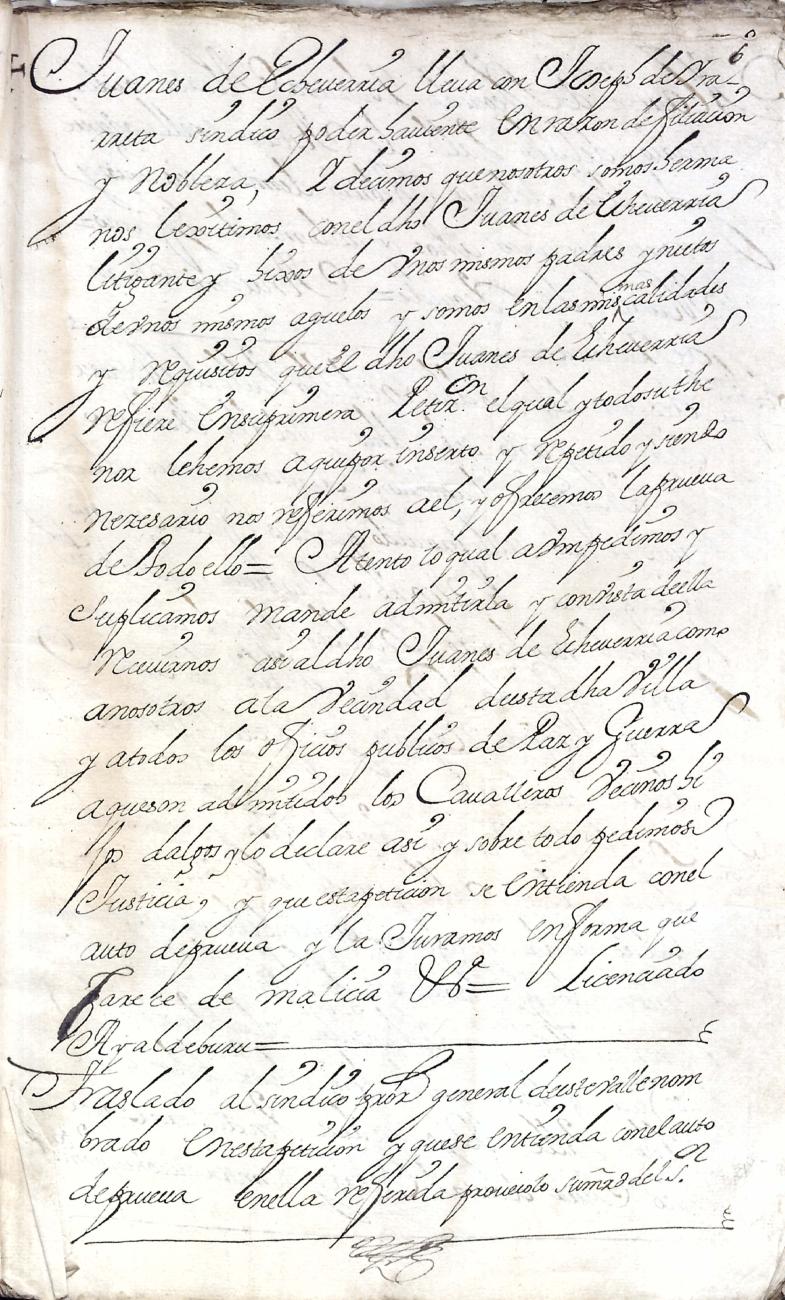 6
Juanes de Echeverria lleua con Joseph de Yra=
rreta sindico poder hauiente en razon de filiacion
y Nobleza, Y decimos que nosotros somos herma
nos lexitimos con el dho Juanes de Echeverria
litigante y hixos de Vnos mismos padres y nietos
de vnos mismos aguelos y somos en las mismas calidades
y requisitos que el dho Juanes de Echeverria
refiere en su primera Petizon el qual y todo su the
nor lehemos aqui por inserto y repetido y siendo
nezesario nos referimos a el, y ofrecemos la prueua
de todo ello= Atento lo qual a vm pedimos y
suplicamos mande admitirla y con vista de ella
Recevirnos asi al dho Juanes de Echeverria como
a nosotros a la Vecindad de esta dha Villa
y a todos los oficios publicos de Paz y Guerra
a que son admitidos los Cavalleros Vecinos hi
jos dalgo y lo declare asi y sobre todo pedimos
Justicia, y que esta peticion se entienda con el
auto de prueua y la Juramos en forma que
Careze de malicia &a= Licenciado
Ryaldeburu=
Traslado al sindico pror general de este valle nom
brado en esta peticion y que se entienda con el auto
de prueua en ella referida proueiolo su mrd del Sr